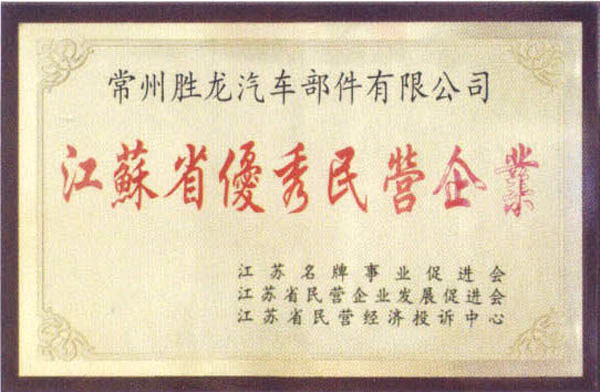 常州胜龙汽车部件有限公司
江蘇省優秀民營企業
江苏名牌事业促进会
江苏省民营企业发展促进会
江苏省民营经济投诉中心